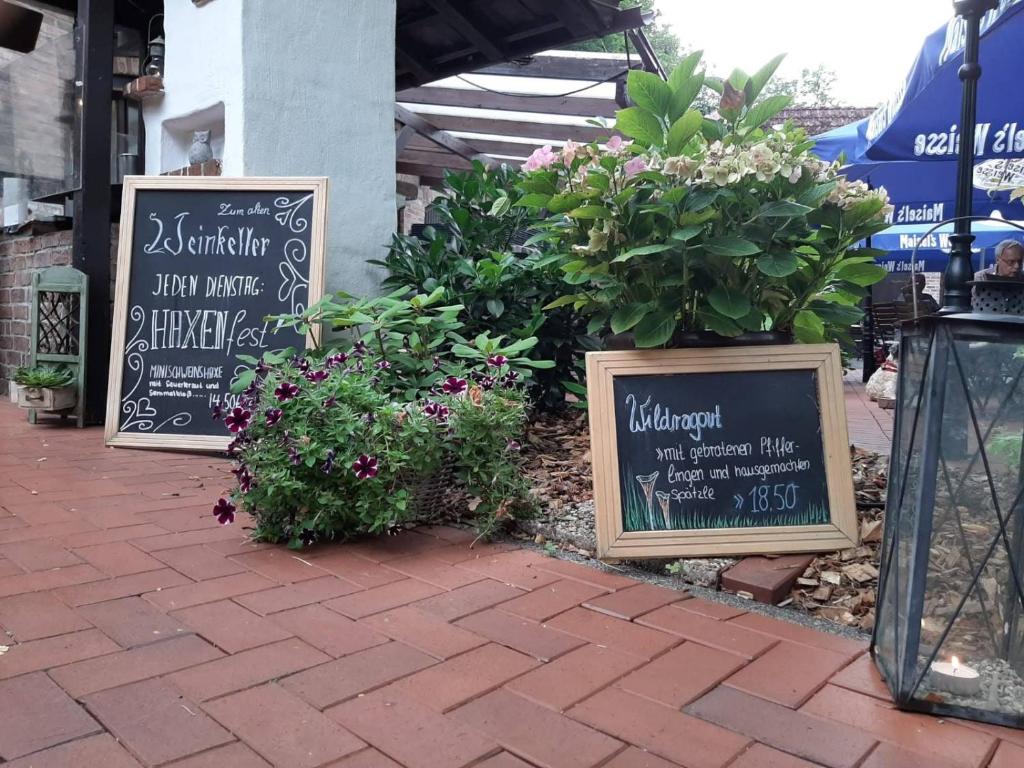 Zum alten
Weinkeller
JEDEN DIENSTAG:
HAXENfest
MINISCHWEINSHAXE
mit Sauerkraut und
Semmelkloß...... 14,50€
Wildragout
»mit gebratenen Pfiffer-
lingen und hausgemachten
Spätzle
» 18.50
Maisel's Weisse
Maisel's
Maisel's We